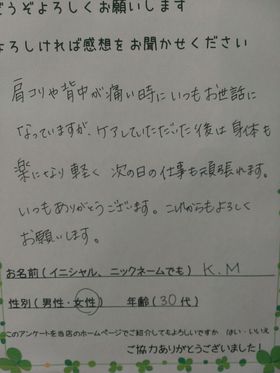 どうぞよろしくお願いします
よろしければ感想をお聞かせください
肩コリや背中が痛い時にいつもお世話に
なっていますが、ケアしていただいた後は身体も
楽になり軽く次の日の仕事も頑張れます。
いつもありがとうございます。これからもよろしく
お願いします。
お名前(イニシャル、ニックネームでも) K.M
性別(男性・女性) 年齢(30代)
このアンケートを当店のホームページでご紹介してもよろしいですか はい・いいえ
ご協力ありがとうございました!